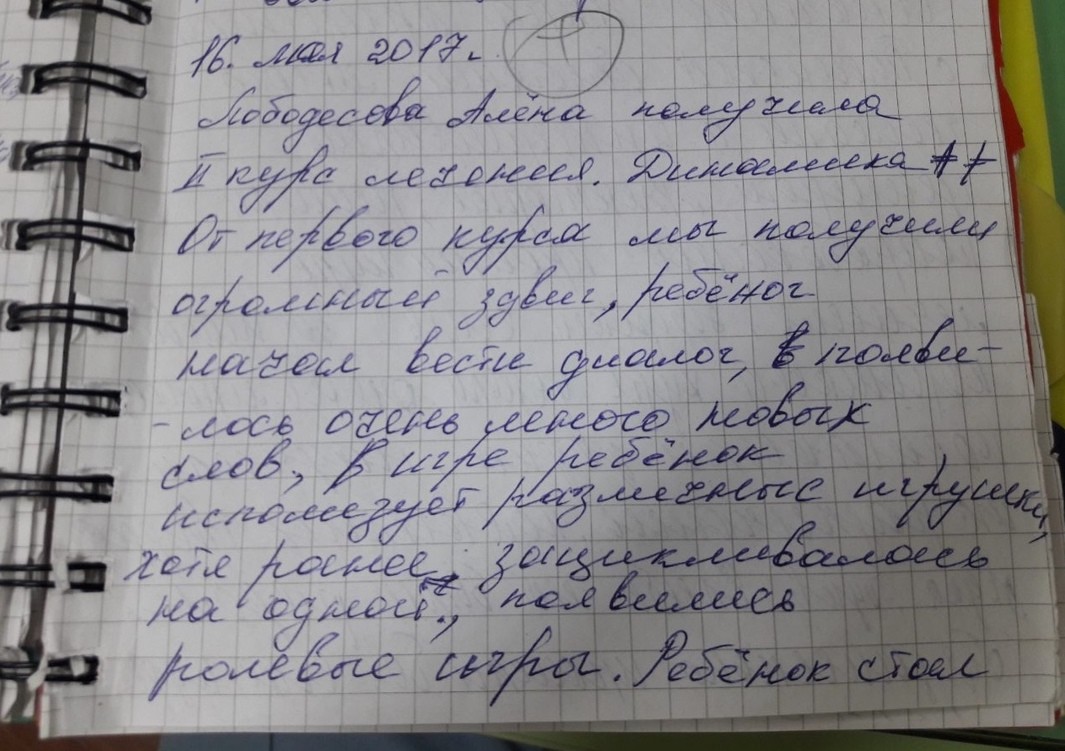 16. мая 2017г.
Лободесова Алёна получила
II курс лечения. Динамика ++
От первого курса мы получили
огромный здвиг, ребёнок
начал вести диалог, появи-
-лось очень много новых
слов, в игре ребёнок
использует различные игрушки,
хотя ранее зацикливалась
на одной, появились
ролевые игры. Ребёнок стал